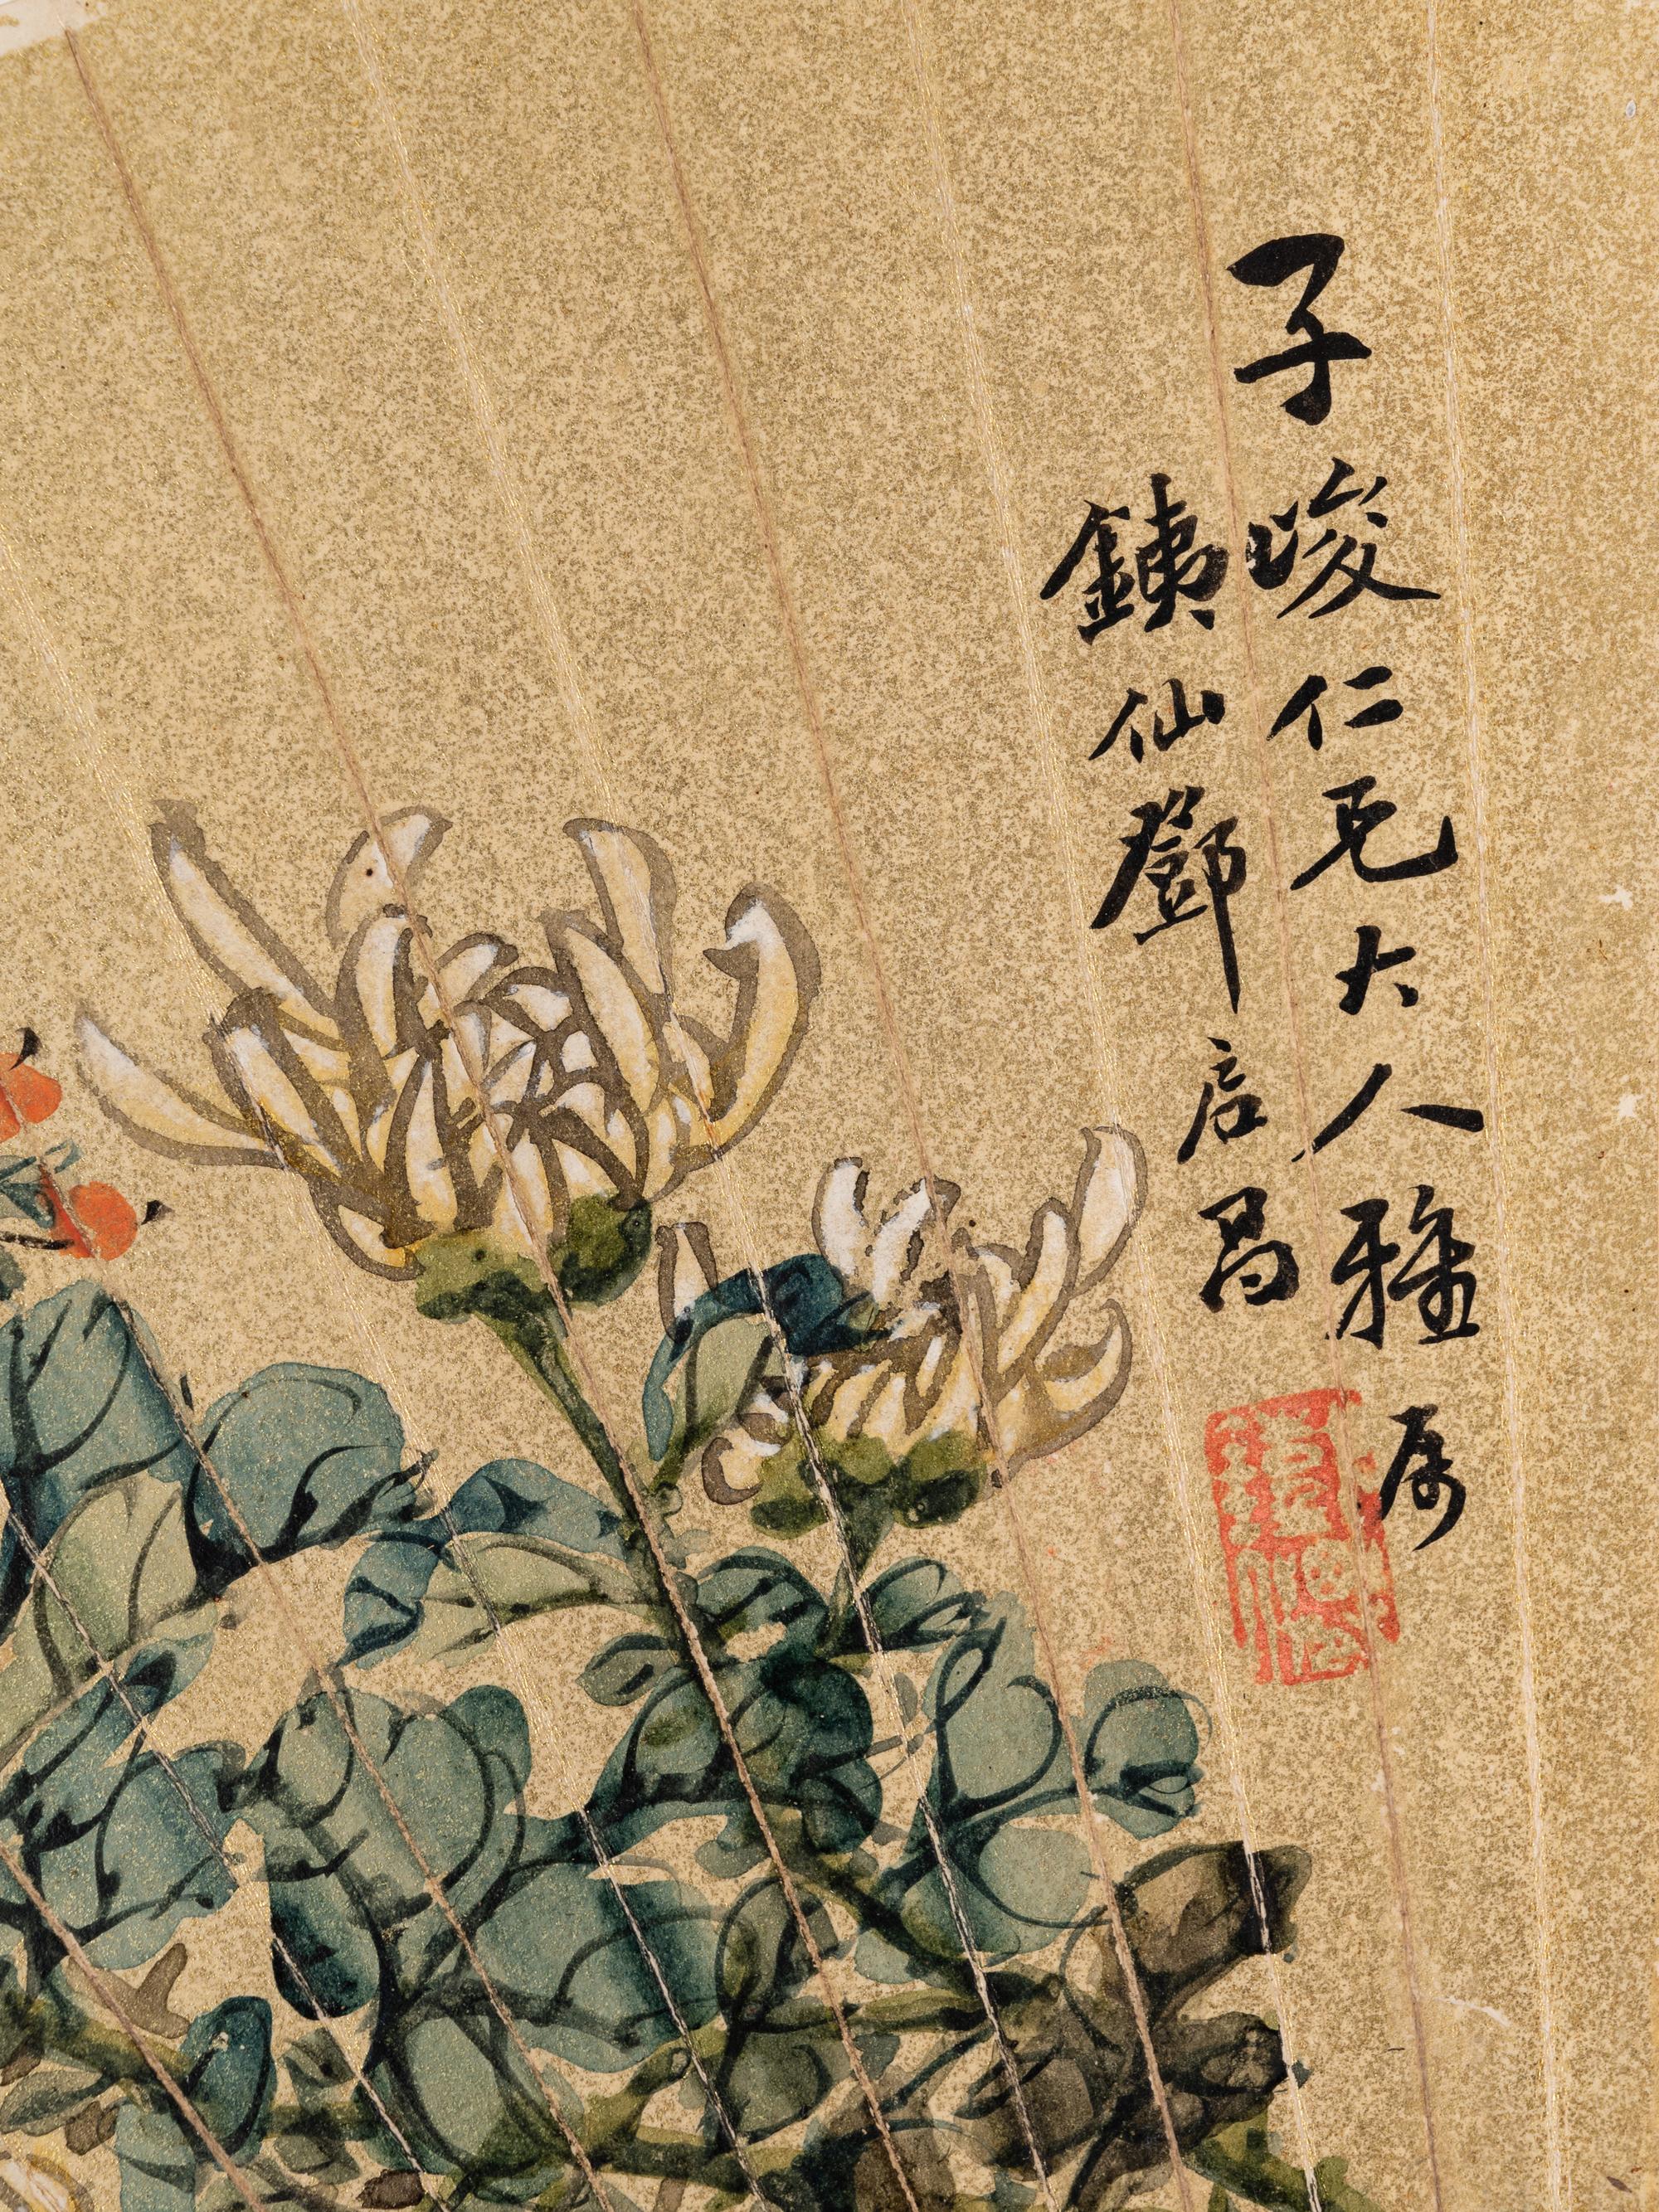 子峻仁兄大人雅属
銕仙鄧启昌